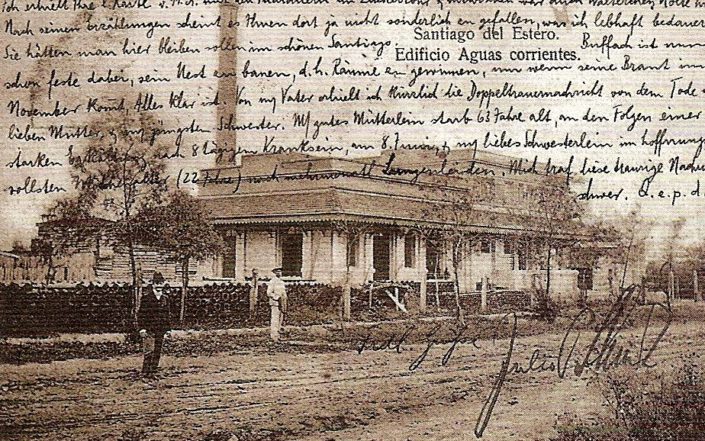 Ich erhielt Ihre
Nach seinen Erzählungen scheint es Ihnen dort ja nicht sonderlich zu gefallen, was ich lebhaft bedauere
Sie hätten man hier bleiben sollen im schönen Santiago.
Santiago del Estero.
Edificio Aguas corrientes.
Buffach ist nun
schon feste dabei, sein Nest zu bauen, d.h. Räume zu gewinnen, um wenn seine Braut im
November kommt, Alles klar ist. Von my Vater erhielt ich kürzlich die Doppeltrauernachricht von dem Tode
lieben Mutter, & my jüngsten Schwester. My gutes Mütterlein starb 63 Jahre alt, an den Folgen einer
starken Erkältung, nach 8 tägigem Kranksein, am 8. Juni, & my liebes Schwesterlein im hoffnungs
vollsten (22 Jahre) nach Lungenleiden. Mich traf diese traurige Nachr
schwer. Q. e. p. d.
Julio